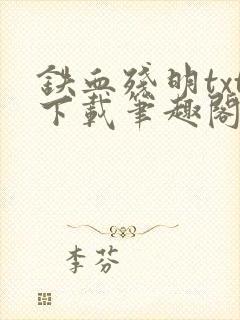 鉄血殘明txt
下載筆趣閣
李芬